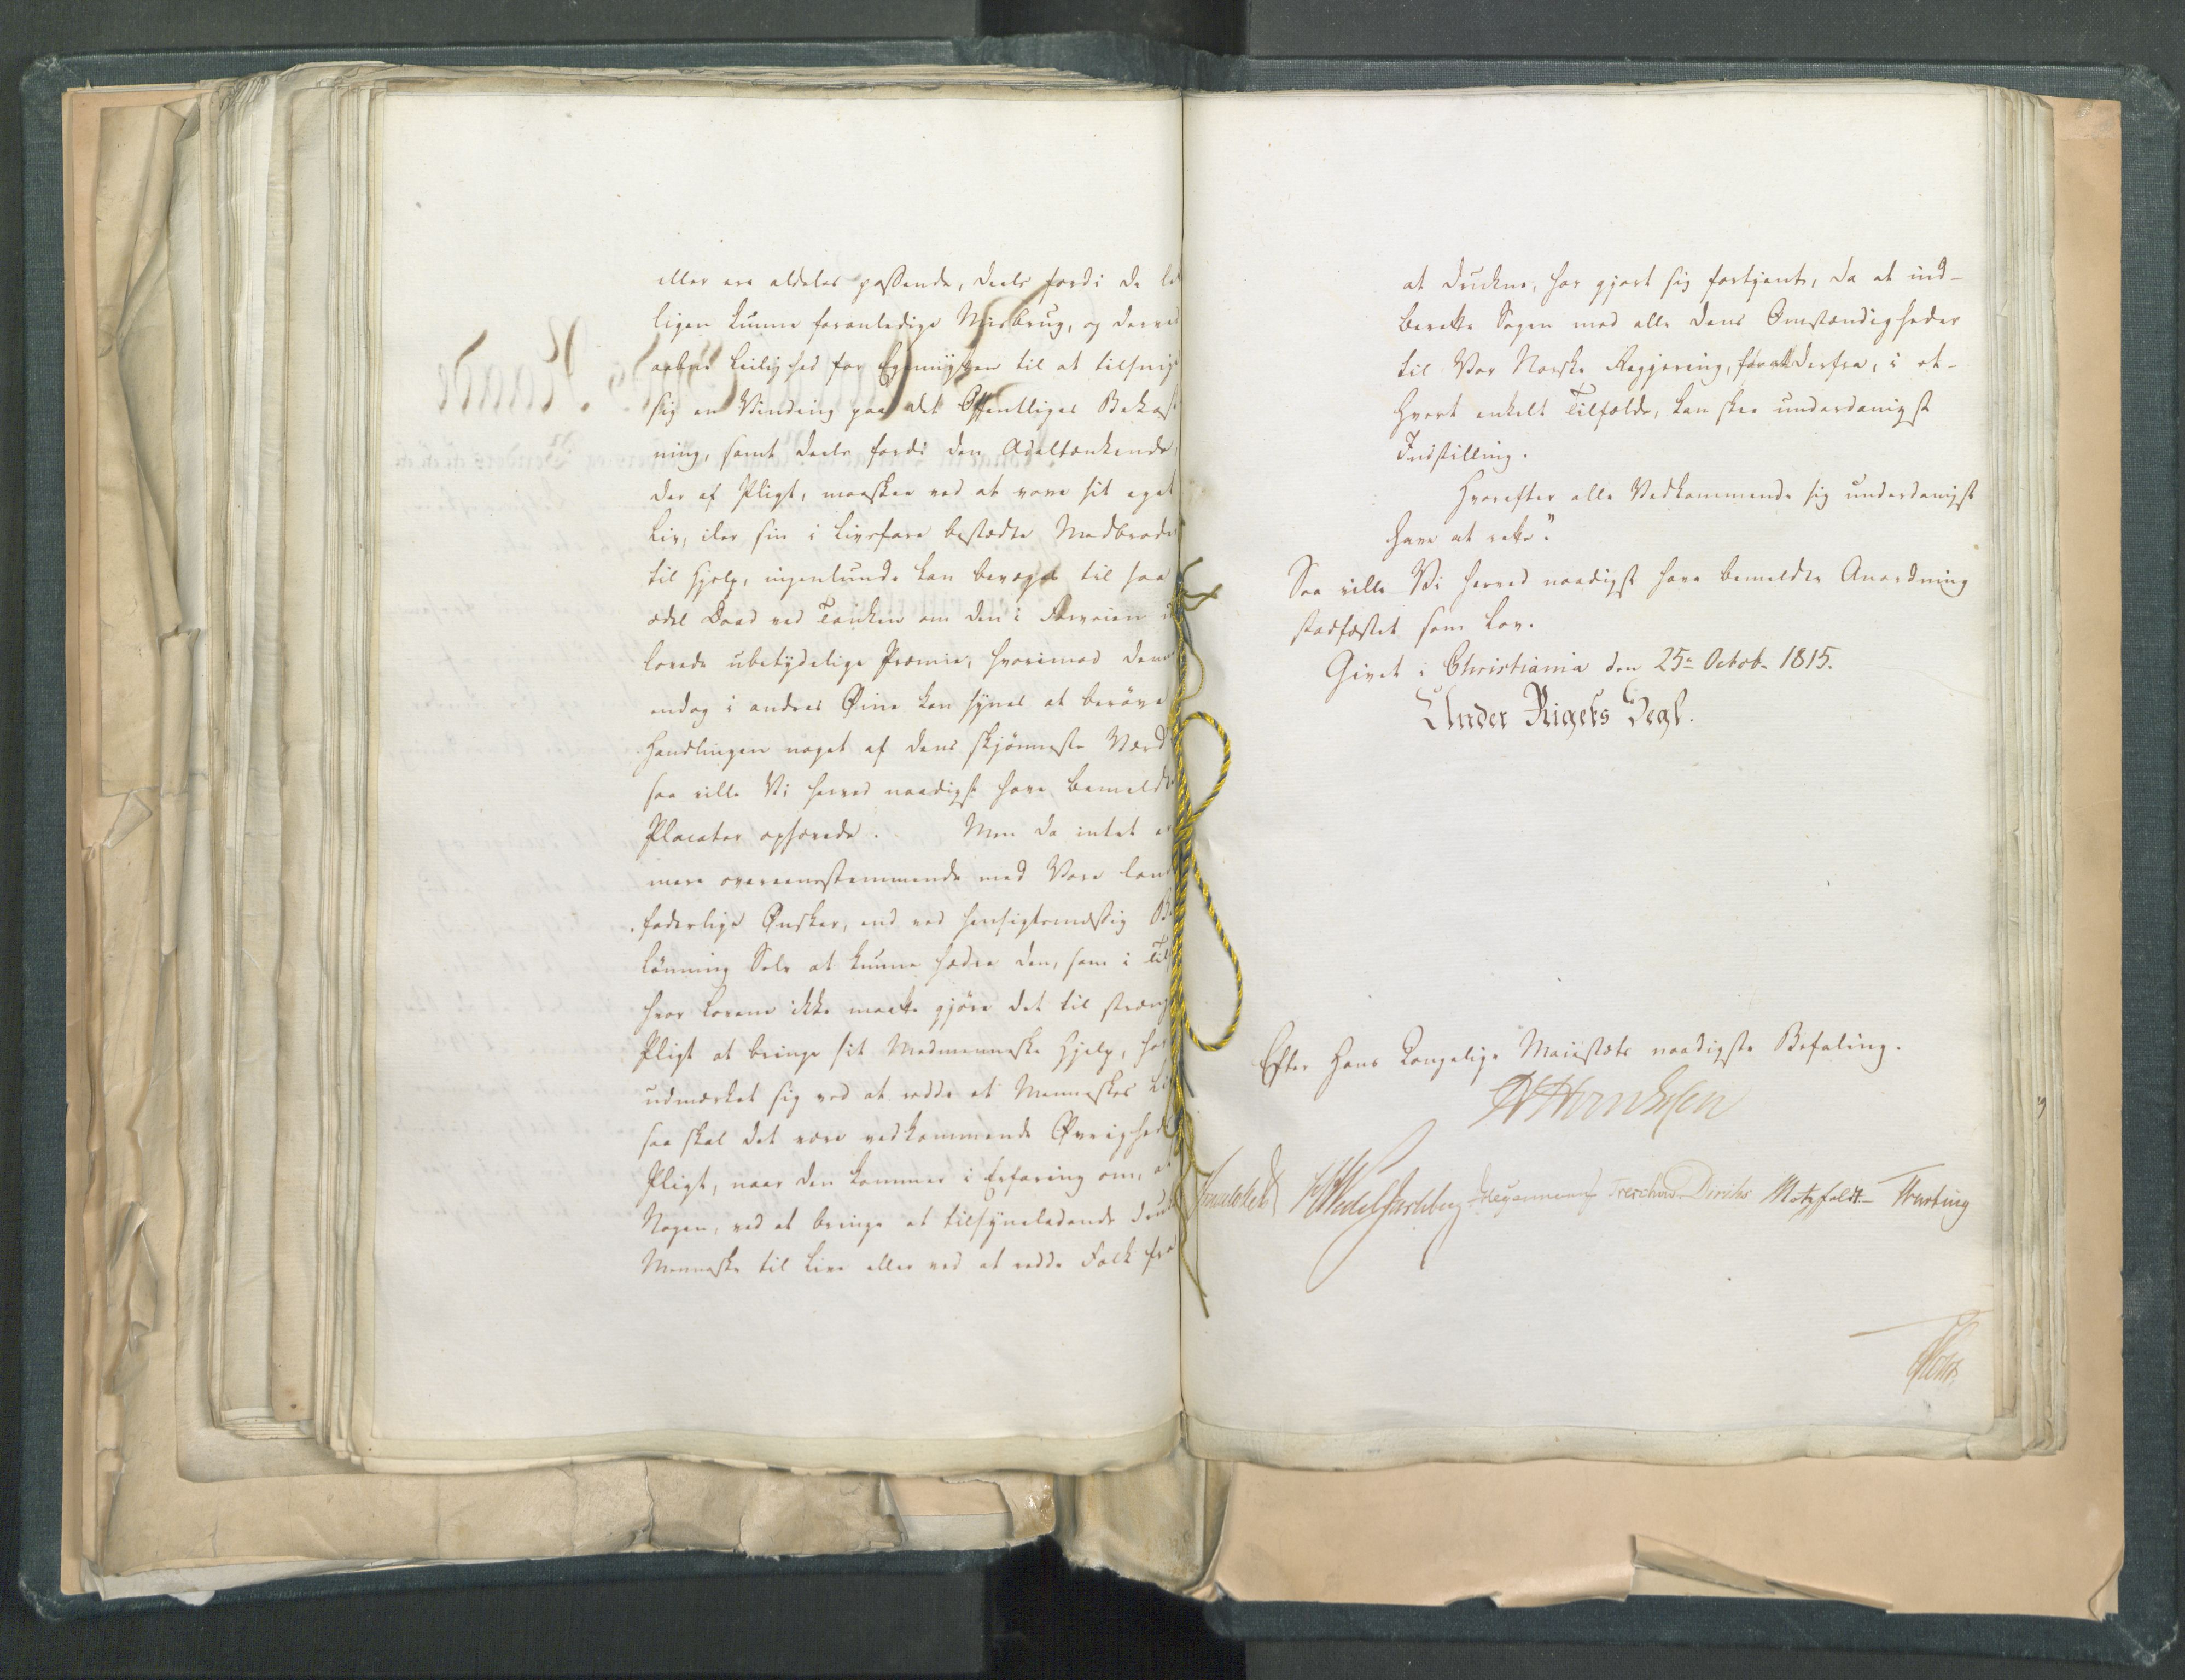 eller ere aldeles passende, deels fordi de let
ligen kunne foranledige Misbrug, og derved
aabne Leilighed for Egennytten til at tilsnige
sig en Vinding paa det Offentliges Bekost
ning, samt deels fordi den Ædeltænkende,
der af Pligt, maaskee ved at vove sit eget
Liv, iler sin i Livsfare bestædte Medbroder
til Hjelp, ingenlunde kan bevæges til saa
ædel Daad ved Tanken om den i Forveien
lovede ubetydelige Præmie, hvorimod denne
endog i andres Øine kan synes at berøve
Handlingen noget af dens skjønneste Værd
saa ville Vi herved naadigst have bemeldte
Placater ophævede. Men da intet er
mere overeensstemmende med Vore lands
faderlige Ønsker, end ved hensigtsmæssig Be
lønning Selv at kunne hædre den, som i
hvor Lovene ikke maatte gjøre det til streng
Pligt at bringe sit Medmenneske Hjelp, har
udmærket sig ved at redde et Menneskes Liv
saa skal det være vedkommende Øvrigheds
Pligt, naar den kommer i Erfaring om, at
Nogen, ved at bringe et tilsyneladende dødt
Menneske til Live eller ved at redde Folk fra
at drukne, har gjort sig fortjent, da at ind-
berette Sagen med alle dens Omstændigheder
til Vor Norske Regjering, for at derfra, i et-
hvert enkelt Tilfælde, kan skee underdanigst
Indstilling.
Hvorefter alle Vedkommende sig underdanigst
have at rette."
Saa ville Vi herved naadigst have bemeldte Anordning
stadfæstet som Lov.
Givet i Christiania den 25de Octobr 1815.
Under Rigets Segl.
Efter Hans Kongelige Maiestæts naadigste Befaling.
HWedel Jarlsberg Hegermann Treschow Diriks Motzfeldt